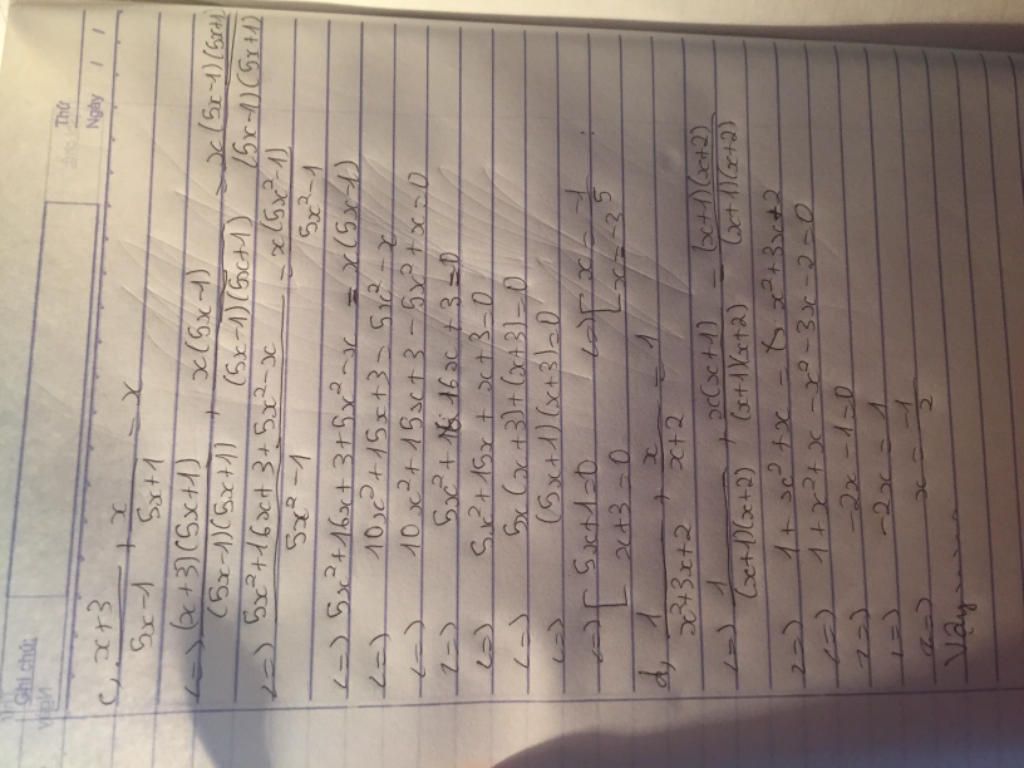 Thứ
Ngày
Ghi chú
c, x+3/5x-1 + x/5x+1 = x
<=> (x+3)(5x+1)/(5x-1)(5x+1) + x(5x-1)/(5x-1)(5x+1) = x(5x-1)(5x+1)/(5x-1)(5x+1)
<=> 5x²+16x+3+5x²-x/5x²-1 = x(5x²-1)/5x²-1
<=> 5x²+16x+3+5x²-x = x(5x-1)
<=> 10x²+15x+3 = 5x²-x
<=> 10x²+15x+3-5x²+x=0
<=> 5x²+16x+3=0
<=> 5x²+15x+x+3=0
<=> 5x(x+3)+(x+3)=0
<=> (5x+1)(x+3)=0
<=> [ 5x+1=0 <=> [ x=-1/5
x+3=0 x=-3
d, 1/x²+3x+2 + x/x+2 = 1
<=> 1/(x+1)(x+2) + x(x+1)/(x+1)(x+2) = (x+1)(x+2)/(x+1)(x+2)
<=> 1+x²+x = x²+3x+2
<=> 1+x²+x-x²-3x-2=0
<=> -2x-1=0
<=> -2x=1
<=> x=-1/2
Vậy......